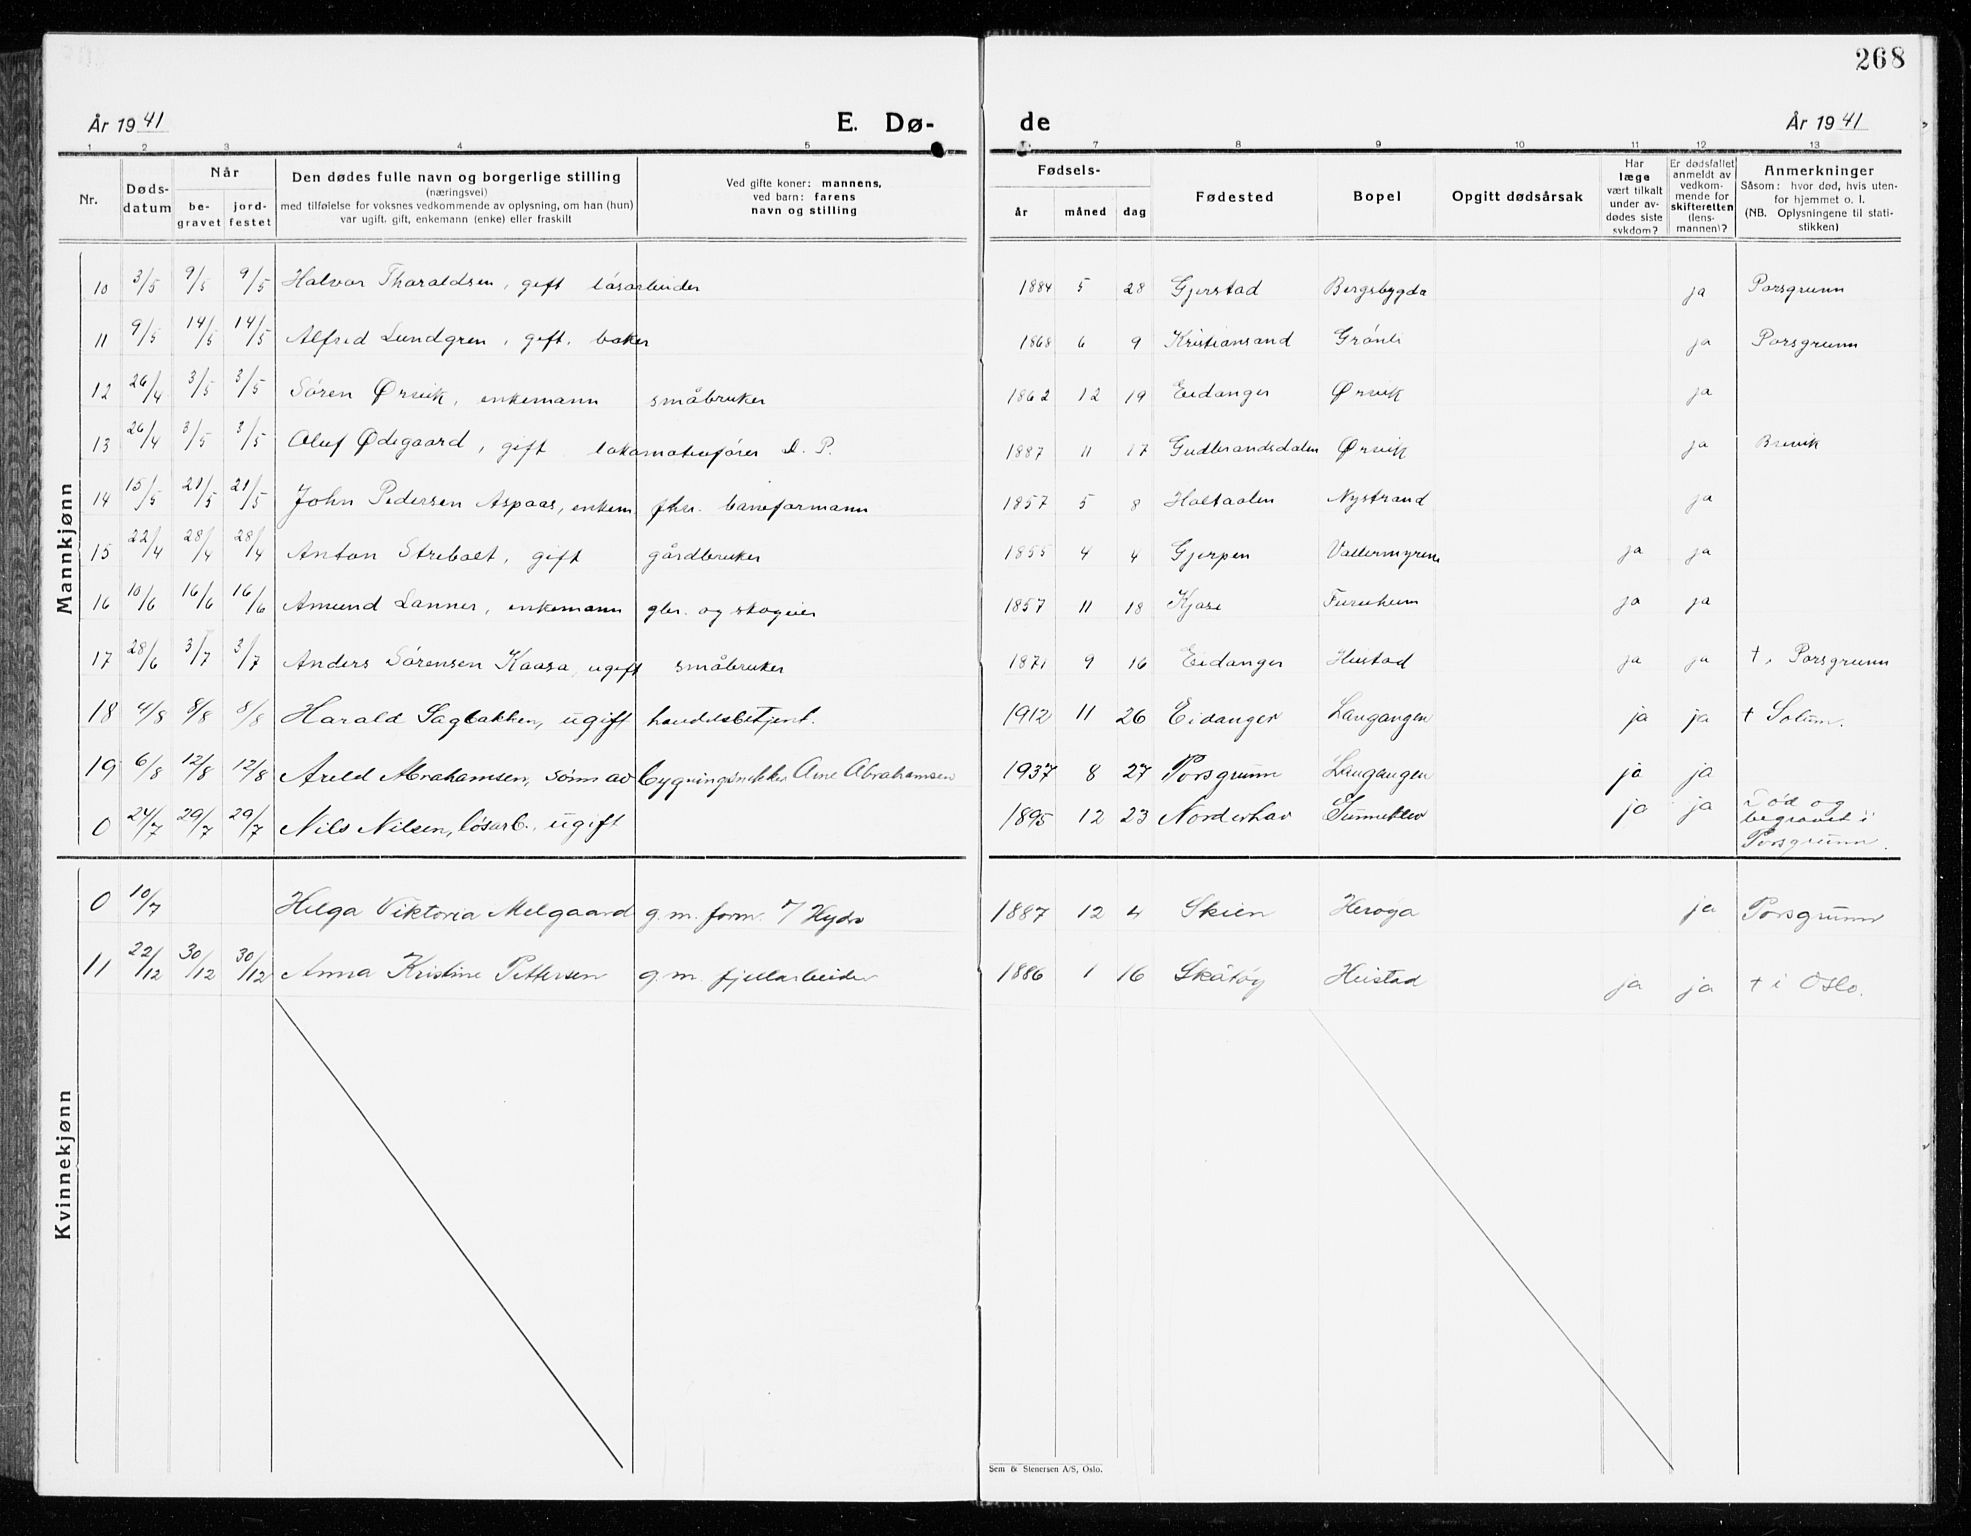 268
År 1941 E. Dø- de År 1941
1 2 3 4 5 7 8 9 10 11 12 13
Nr.
Døds-
datum
Når
be-
gravet
jord-
festet
Den dødes fulle navn og borgerlige stilling
(næringsvei)
med tilføielse for voksnes vedkommende av oplysning, om han (hun)
var ugift, gift, enkemann (enke) eller fraskilt
Ved gifte koner: mannens,
ved barn: farens
navn og stilling
Fødsels-
år måned dag
Fødested
Bopel
Opgitt dødsårsak
Har
læge
vært tilkalt
under av-
dødes siste
sykdom?
Er dødsfallet
anmeldt av
vedkom-
mende for
skifteretten
(lens-
mannen)?
Anmerkninger
Såsom: hvor død, hvis uten-
for hjemmet o. l.
(NB. Oplysningene til stati-
stikken)
Mannkjønn
10 3/5 9/5 9/5 Halvor Tharaldsen, gift løsarbeider 1884 5 28 Gjerstad Bergsbygda ja Porsgrunn
11 9/5 14/5 14/5 Alfred Lundgren, gift, baker 1868 6 9 Kristiansand Grønli ja Porsgrunn
12 26/4 3/5 3/5 Sören Ørvik, enkemann småbruker 1862 12 19 Eidanger Ørvik ja
13 26/4 3/5 3/5 Oluf Ødegaard, gift lokomotivfører D. P. 1887 11 17 Gudbrandsdalen Ørvik ja Brevik
14 15/5 21/5 21/5 John Pedersen Aspaas, enkem. fhv. baneformann 1857 5 8 Holtaalen Nystrand ja
15 22/4 28/4 28/4 Anton Strebolt, gift gårdbruker 1855 4 4 Gjerpen Vallermyrene ja ja
16 10/6 16/6 16/6 Amund Lanner, enkemann gbr. og skogeier 1857 11 18 Kjose Furuheim ja ja
17 28/6 3/7 3/7 Anders Sørensen Kaasa, ugift småbruker 1871 9 16 Eidanger Heistad ja ja †, Porsgrunn
18 4/8 8/8 8/8 Harald Sagbakken, ugift handelsbetjent. 1912 11 26 Eidanger Langangen ja ja † Solum.
19 6/8 12/8 12/8 Areld Abrahamsen, sønn av bygningsnekker Arne Abrahamsen 1937 8 27 Porsgrunn Langangen ja ja
0 24/7 29/7 29/7 Nils Nilsen, løsarb., ugift 1895 12 23 Norderhov ja ja Død og
begravet i
Porsgrunn.
Kvinnekjønn
0 10/7 Helga Viktoria Melgaard g. m. form. v/ Hydro 1887 12 4 Skien Herøya ja Porsgrunn
11 22/12 30/12 30/12 Anna Kristine Pettersen g. m. fjellarbeider 1886 1 16 Skåtøy Heistad ja ja † i Oslo.
Sem & Stenersen A/S, Oslo.